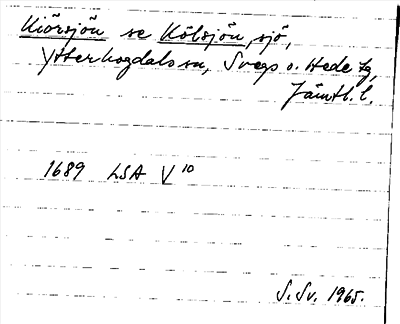 Kiörsjön se Kölsjön, sjö,
Ytterhogdals sn, Svegs o. Hede tg,
Jämtl. l.
1689 LSA V 10
S. Sv. 1965.